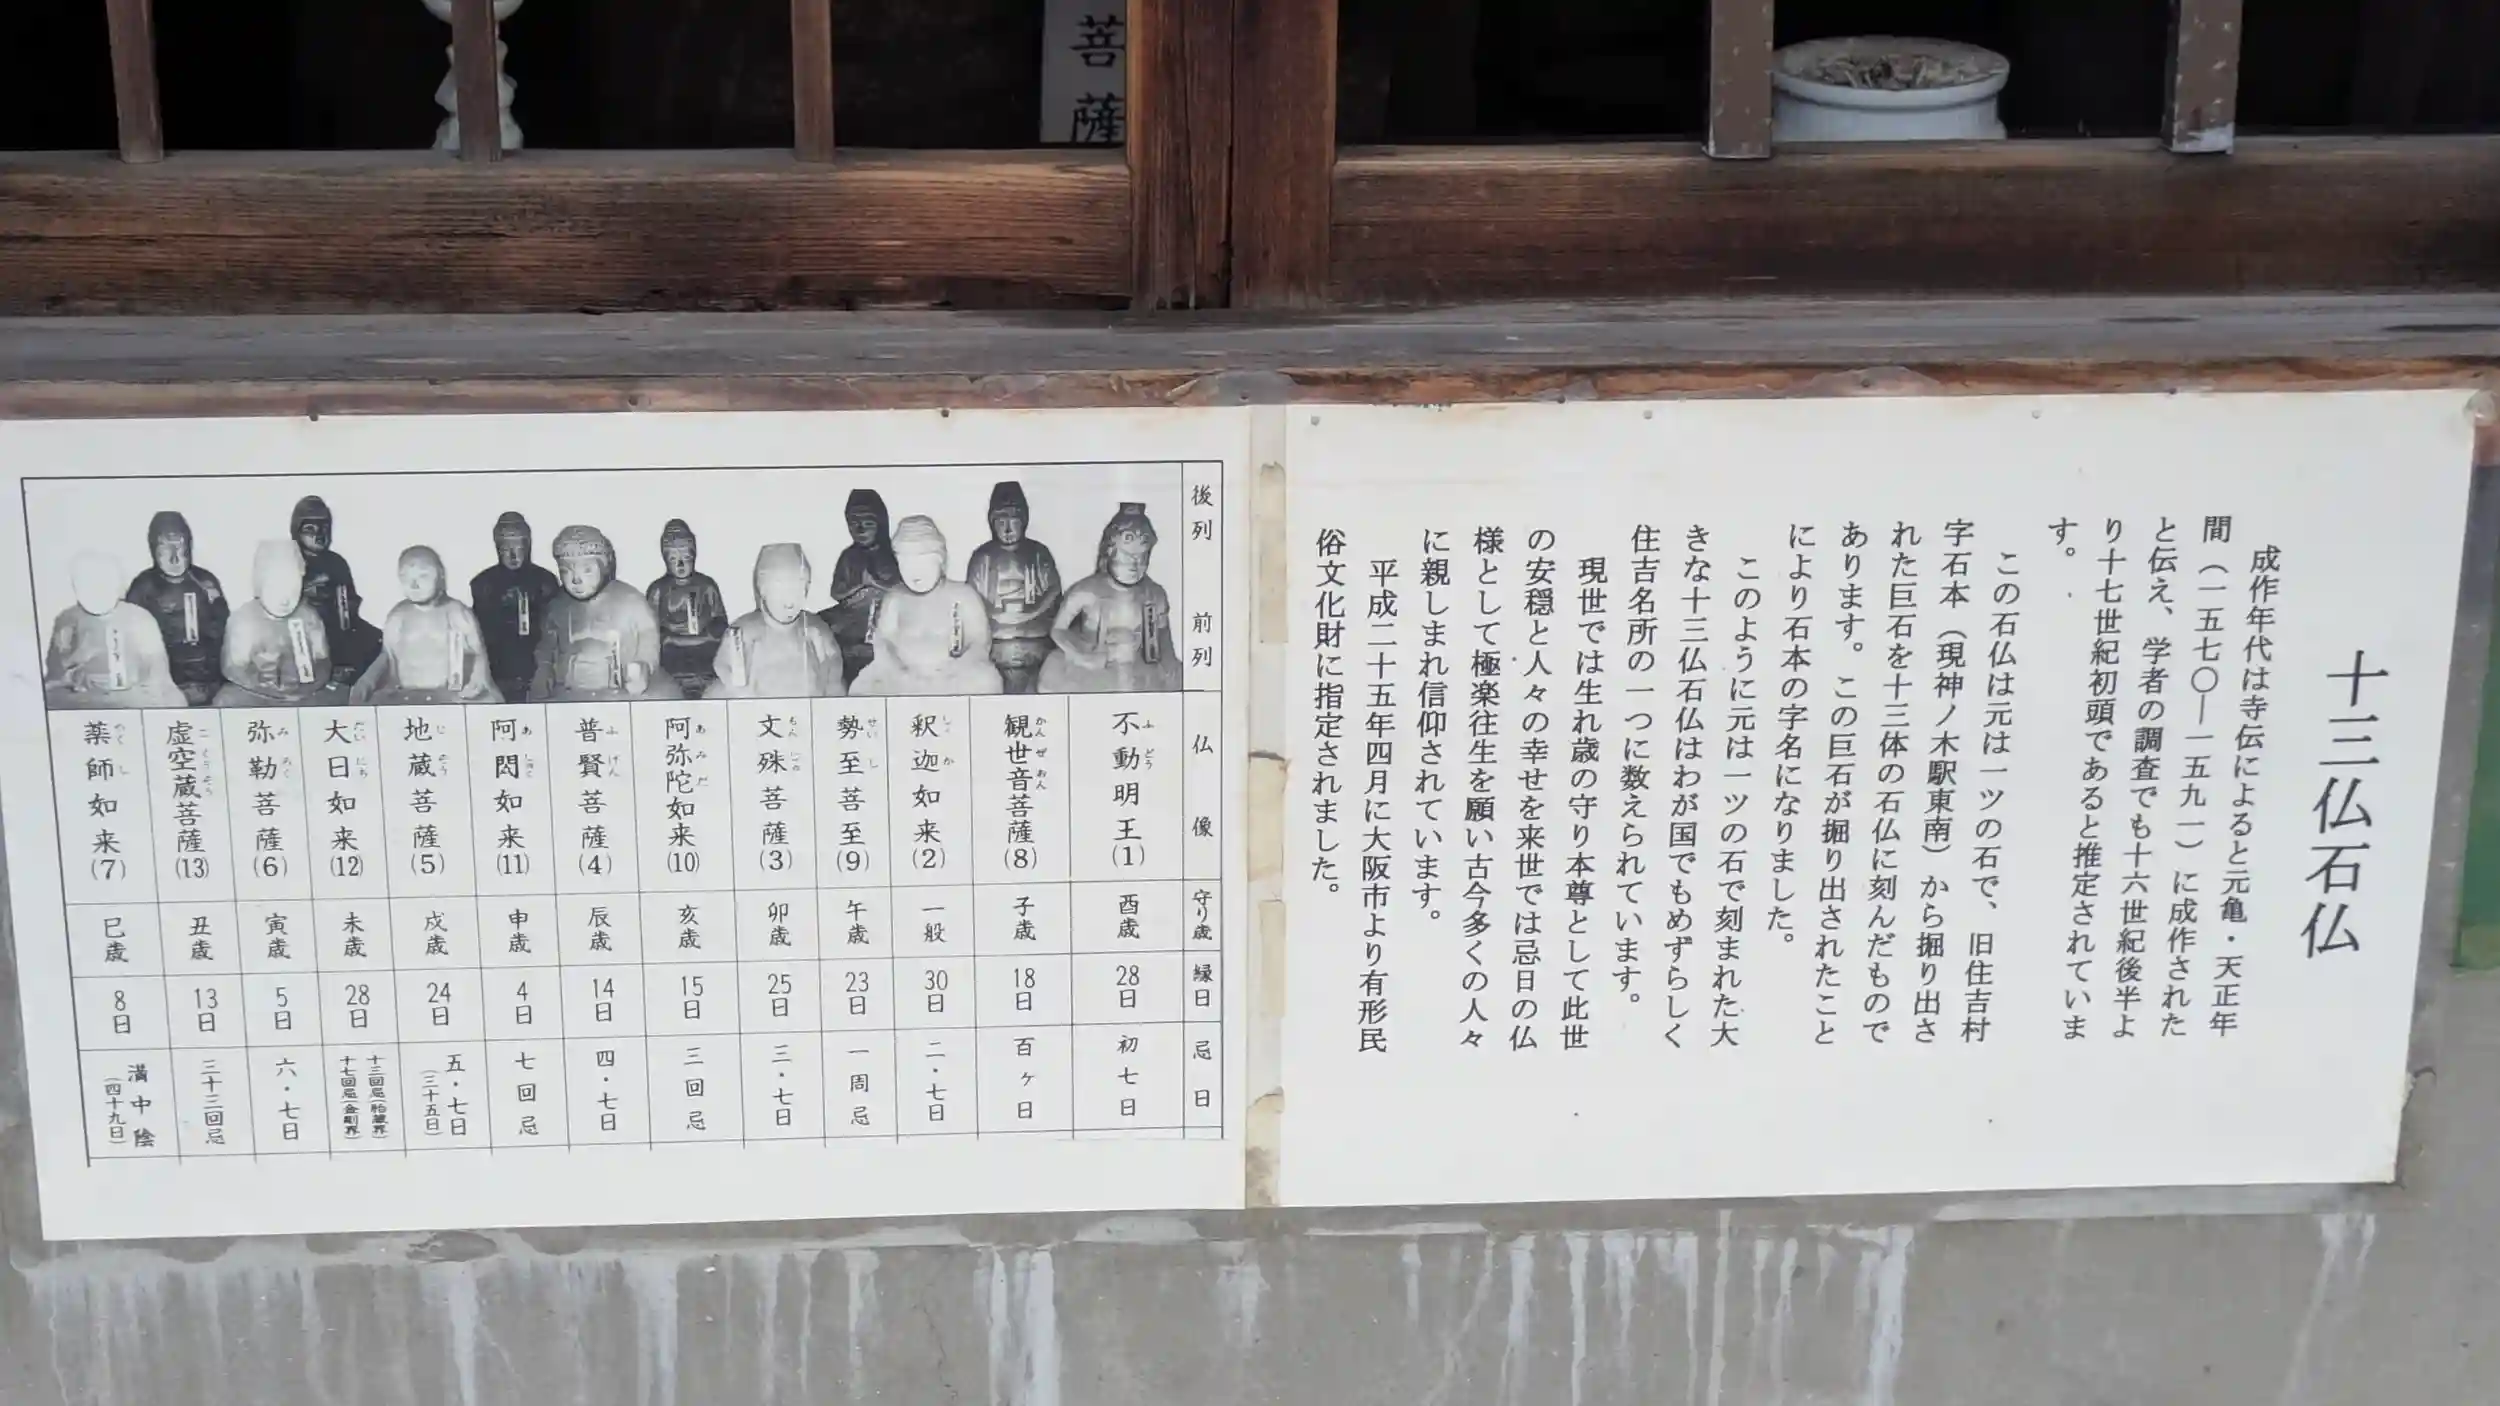 菩薩
十三仏石仏
成作年代は寺伝によると元亀・天正年
間（一五七〇―一五九一）に成作された
と伝え、学者の調査でも十六世紀後半よ
り十七世紀初頭であると推定されていま
す。
この石仏は元は一ツの石で、旧住吉村
字石本（現神ノ木駅東南）から掘り出さ
れた巨石を十三体の石仏に刻んだもので
あります。この巨石が掘り出されたこと
により石本の字名になりました。
このように元は一ツの石で刻まれた大
きな十三仏石仏はわが国でもめずらしく
住吉名所の一つに数えられています。
現世では生れ歳の守り本尊として此世
の安穏と人々の幸せを来世では忌日の仏
様として極楽往生を願い古今多くの人々
に親しまれ信仰されています。
平成二十五年四月に大阪市より有形民
俗文化財に指定されました。
後列 前列
仏像
守り歳
縁日
忌日
不動明王(1) ふどう
酉歳
28日
初七日
観世音菩薩(8) かんぜおん
子歳
18日
百ヶ日
釈迦如来(2) しゃか
一般
30日
二・七日
勢至菩至(9) せいし
午歳
23日
一周忌
文殊菩薩(3) もんじゅ
卯歳
25日
三・七日
阿弥陀如来(10) あみだ
亥歳
15日
三回忌
普賢菩薩(4) ふげん
辰歳
14日
四・七日
阿閦如来(11) あしゅく
申歳
4日
七回忌
地蔵菩薩(5) じぞう
戌歳
24日
五・七日
(三十五日)
大日如来(12) だいにち
未歳
28日
十三回忌(胎蔵界)
十七回忌(金剛界)
弥勒菩薩(6) みろく
寅歳
5日
六・七日
虚空蔵菩薩(13) こくうぞう
丑歳
13日
三十三回忌
薬師如来(7) やくし
巳歳
8日
満中陰
(四十九日)